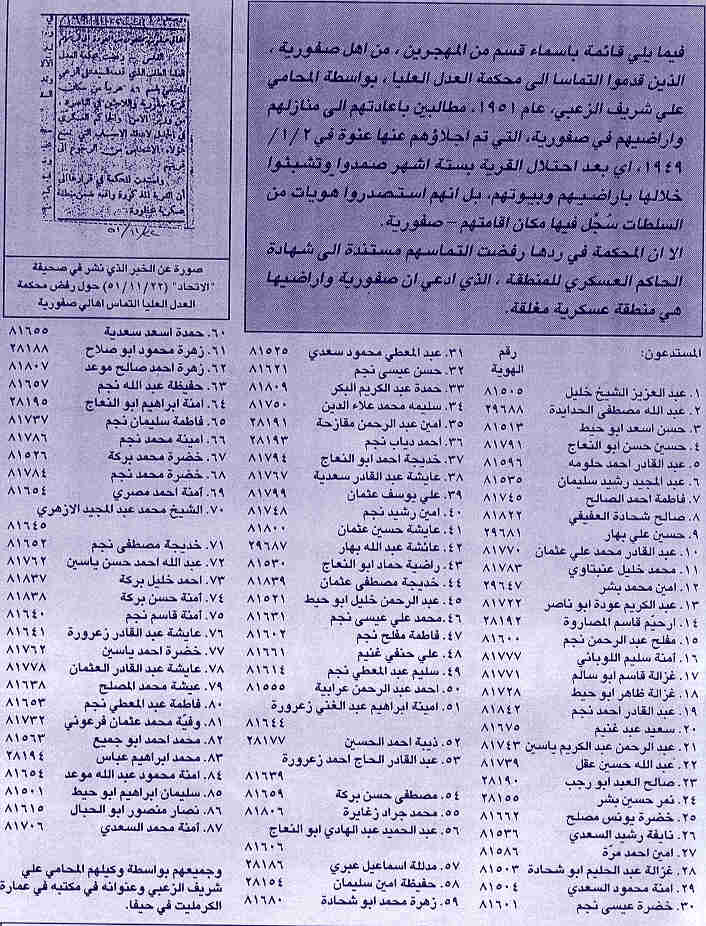 فيما يلي قائمة باسماء قسم من المهجرين ، من اهل صفورية ،
الذين قدموا التماسا الى محكمة العدل العليا ، بواسطة المحامي
علي شريف الزعبي، عام ١٩٥١، مطالبين باعادتهم الى منازلهم
واراضيهم في صفورية، التي تم اجلاؤهم عنها عنوة في ١/٢/
١٩٤٩، اي بعد احتلال القرية بستة اشهر صمدوا وتشبثوا
خلالها باراضيهم وبيوتهم، بل انهم استصدروا هويات من
السلطات سُجِّل فيها مكان اقامتهم – صفورية.
الا ان المحكمة في ردها رفضت التماسهم مستندة الى شهادة
الحاكم العسكري للمنطقة ، الذي ادعى ان صفورية واراضيها
هي منطقة عسكرية مغلقة.
صورة عن الخبر الذي نشر في صحيفة
"الاتحاد" (٥١/١١/٢٢) حول رفض محكمة
العدل العليا التماس اهالي صفورية
المستدعون: رقم
الهوية
١. عبد العزيز الشيخ خليل ٨١٥٠٥
٢. عبد الله مصطفى الحدايدة ٢٩٦٨٨
٣. حسن اسعد ابو حيط ٨١٥١٣
٤. حسين حسن ابو النعاج ٨١٧٩١
٥. عبد القادر احمد حلومه ٨١٥٩٦
٦. عبد المجيد رشيد سليمان ٨١٥٣٥
٧. فاطمة احمد الصالح ٨١٧٤٥
٨. صالح شحادة العفيفي ٨١٨٢٢
٩. حسين علي بهار ٢٩٦٨١
١٠. عبد القادر محمد علي عثمان ٨١٧٧٠
١١. محمد خليل عنبتاوي ٨١٧٨٣
١٢. امين محمد بشر ٢٩٦٤٧
١٣. عبد الكريم عودة ابو ناصر ٨١٧٢٢
١٤. ارحيّم قاسم المصاروة ٢٨١٩٢
١٥. مفلح عبد الرحمن نجم ٨١٦٠٠
١٦. آمنة سليم اللوباني ٨١٧٧٧
١٧. غزالة قاسم ابو سالم ٨١٧٧١
١٨. غزالة ظاهر ابو حيط ٨١٧٢٨
١٩. عبد القادر احمد نجم ٨١٨٤٢
٢٠. سعيد عبد غنيم ٨١٦٧٥
٢١. عبد الرحمن عبد الكريم ياسين ٨١٧٤٣
٢٢. عبد الله حسين عقل ٨١٧٣٩
٢٣. صالح العبد ابو رجب ٢٨١٩٠
٢٤. نمر حسين بشر ٢٨١٥٥
٢٥. خضرة يونس مصلح ٨١٦٦٢
٢٦. نايفة رشيد السعدي ٨١٥٣٦
٢٧. امين احمد مرّة ٨١٥٨٦
٢٨. غزالة عبد الحليم ابو شحادة ٨١٥٠٣
٢٩. امنة محمود السعدي ٨١٥٠٤
٣٠. خضرة عيسى نجم ٨١٦٠١
٣١. عبد المعطي محمود سعدي ٨١٥٢٥
٣٢. حسن عيسى نجم ٨١٦٢١
٣٣. حمدة عبد الكريم البكر ٨١٨٠٩
٣٤. سليمه محمد علاء الدين ٨١٧٥٠
٣٥. امين عبد الرحمن مقازحة ٢٨١٩١
٣٦. احمد دياب نجم ٢٨١٩٣
٣٧. خديجة احمد ابو النعاج ٨١٧٩٤
٣٨. عايشة عبد القادر سعدية ٨١٧٦٧
٣٩. علي يوسف عثمان ٨١٧٩٩
٤٠. امين رشيد نجم ٨١٧٤٨
٤١. عايشة حسين عثمان ٨١٨٠٠
٤٢. عائشة عبد الله بهار ٢٩٦٨٧
٤٣. راضية حماد ابو النعاج ٨١٥٣٠
٤٤. خديجة مصطفى عثمان ٨١٨٣٩
٤٥. عبد الرحمن خليل ابو حيط ٨١٥٢١
٤٦. محمد علي عيسى نجم ٨١٦٣١
٤٧. فاطمة مفلح نجم ٨١٦٠٢
٤٨. علي حنفي غنيم ٨١٦٦١
٤٩. سليم عبد المعطي نجم ٨١٦١٤
٥٠. احمد عبد الرحمن عرابية ٨١٥٥٥
٥١. امينة ابراهيم عبد الغني زعرورة
٨١٦٤٤
٥٢. ذيبة احمد الحسين ٢٨١٧٧
٥٣. عبد القادر الحاج احمد زعرورة
٨١٦٣٩
٥٤. مصطفى حسن بركة ٨١٦٥٩
٥٥. محمد جراد زغايرة ٨١٨٠٦
٥٦. عبد الحميد عبد الهادي ابو النعاج
٨١٦٠٦
٥٧. مدللة اسماعيل عبري ٢٨١٨٦
٥٨. حفيظة امين سليمان ٢٨١٥٤
٥٩. زهرة محمد ابو شحادة ٨١٦٨٠
٦٠. حمدة اسعد سعدية ٨١٦٥٥
٦١. زهرة محمود ابو صلاح ٢٨١٨٨
٦٢. زهرة احمد صالح موعد ٨١٨٠٧
٦٣. حفيظة عبد الله نجم ٨١٦٥٧
٦٤. امنة ابراهيم ابو النعاج ٢٨١٩٥
٦٥. فاطمة سليمان نجم ٨١٧٣٧
٦٦. امينة محمد نجم ٨١٧٨٦
٦٧. خضرة محمد بركة ٨١٥٢٦
٦٨. خضرة محمد نجم ٨١٧٨٤
٦٩. آمنة احمد مصري ٨١٦٥٤
٧٠. الشيخ محمد عبد المجيد الازهري
٨١٦٤٥
٧١. خديجة مصطفى نجم ٨١٦٥٢
٧٢. عبد الله احمد حسن ياسين ٨١٧٦٢
٧٣. احمد خليل بركة ٨١٨٣٧
٧٤. آمنة حسن بركة ٨١٨٣٨
٧٥. آمنة قاسم نجم ٨١٦٤٠
٧٦. عايشة عبد القادر زعرورة ٨١٦٤١
٧٧. خضرة احمد ياسين ٨١٧٦٢
٧٨. عايشة عبد القادر العثمان ٨١٧٧٨
٧٩. عيشة محمد المصلح ٨١٦٣٨
٨٠. فاطمة عبد المعطي نجم ٨١٦٥٣
٨١. وفيّة محمد عثمان فرعوني ٨١٧٣٢
٨٢. محمد احمد ابو جميع ٨١٥٦٣
٨٣. محمد ابراهيم عباس ٢٨١٩٤
٨٤. امنة محمود عبد الله موعد ٨١٦٥٤
٨٥. سليمان ابراهيم ابو حيط ٨١٥٠١
٨٦. نصار منصور ابو الحيال ٨١٦١٥
٨٧. آمنة محمد السعدي ٨١٧٠٦
وجميعهم بواسطة وكيلهم المحامي علي
شريف الزعبي وعنوانه في مكتبه في عمارة
الكرمليت في حيفا.